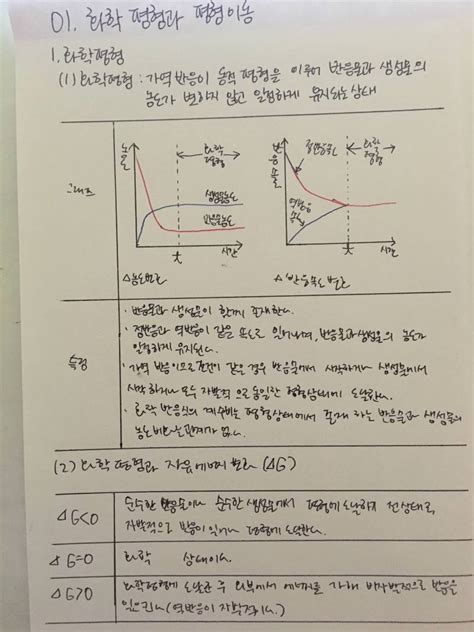 01. 화학 평형과 평형이동
1. 화학평형
(1) 화학평형 : 가역 반응이 동적 평형을 이루어 반응물과 생성물의
농도가 변하지 않고 일정하게 유지되는 상태
그래프
농도
화학
평형
생성물농도
반응물농도
t
시간
△농도변화
반응속도
정반응속도
화학
평형
역반응
속도
t
시간
△반응속도 변화
특징
· 반응물과 생성물이 함께 존재한다.
· 정반응과 역반응이 같은 속도로 일어나며, 반응물과 생성물의 농도가
일정하게 유지된다.
· 가역 반응이므로 조건이 같은 경우 반응물에서 시작하거나 생성물에서
시작하거나 모두 자발적으로 동일한 평형상태에 도달한다.
· 화학 반응식의 계수비는 평형상태에서 존재하는 반응물과 생성물의
농도비와는 관계가 없다.
(2) 화학평형과 자유에너지 변화 (△G)
△G<0
순수한 반응물이나 순수한 생성물에서 평형에 도달하기 전상태로
자발적으로 반응이 일어나 평형에 도달한다.
△G=0
화학 상태이다.
△G>0
화학평형에 도달한 후 외부에서 에너지를 가해 비자발적으로 반응을
일으킨다(역반응이 자발적이다.)